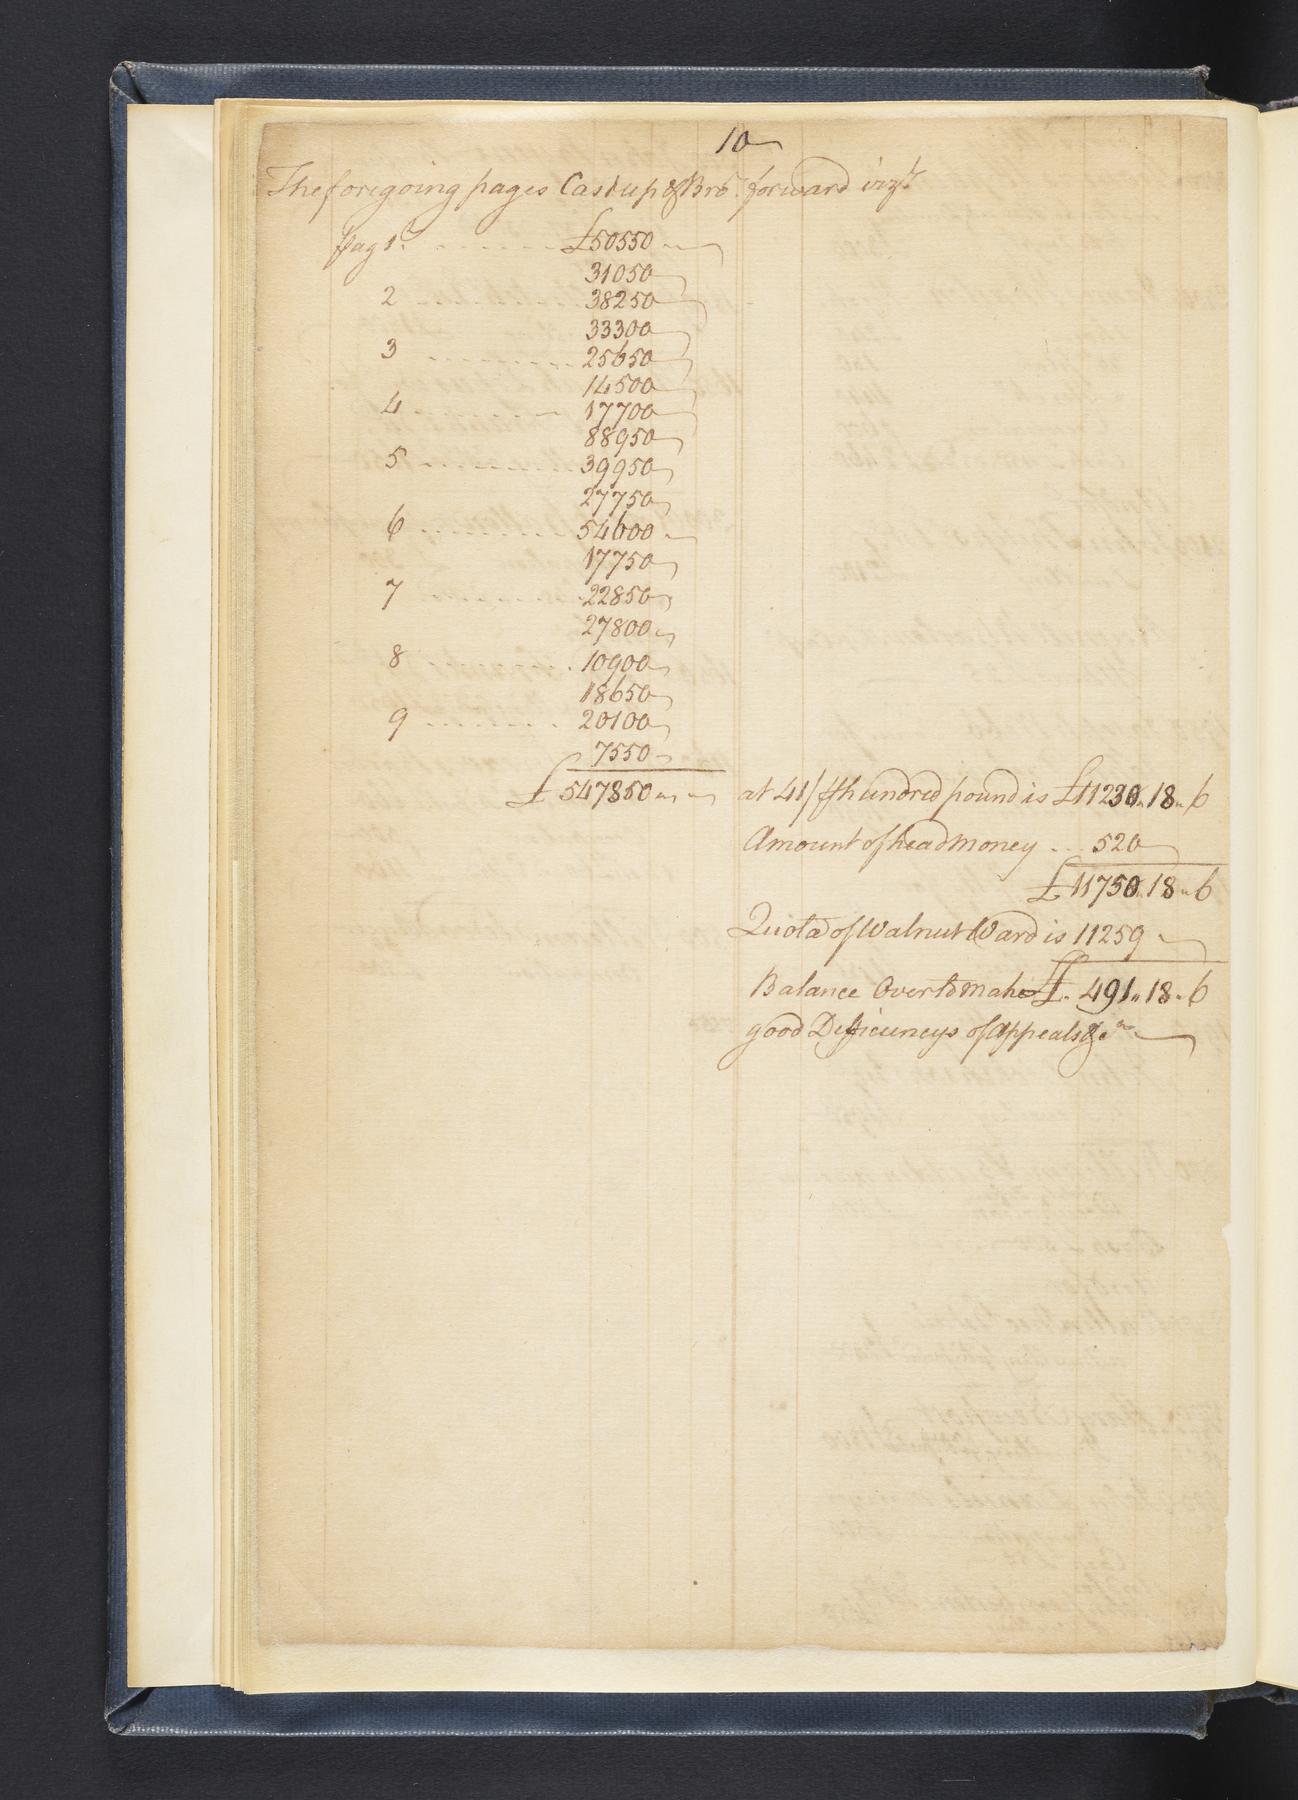 10
The foregoing pages Cast up & Bro.t forward viz.t
pag 1. £50550
31050
2 38250
33300
3 25650
14500
4 17700
88950
5 39950
27750
6 54600
17750
7 22850
27800
8 10900
18650
9 20100
7550
£ 547850 at 41/ ⅌ hundred pound is £11230.18.6
Amount of head money 520
£11750.18.6
Quota of Walnut Ward is 11259
Balance Over to make £. 491.18.6
good Deficiencys of Appeals &c.a